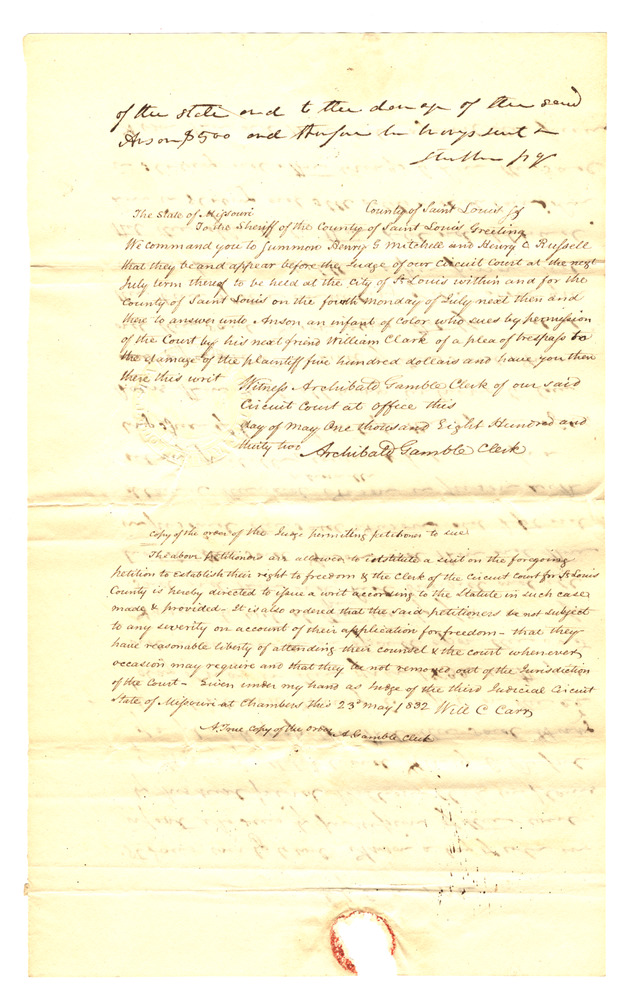 of the state and to the damage of the said
Anson $500 and therefore he brings suit &
pq
The State of Missouri County of Saint Louis
To the Sheriff of the County of Saint Louis Greeting
We command you to Summon Henry G Mitchell and Henry C Russell
that they be and appear before the Judge of our Circuit Court at the next
July term thereof to be held at the City of St Louis within and for the
County of Saint Louis on the fourth Monday of July next then and
there to answer unto Anson an infant of color who sues by permission
of the Court by his next friend William Clark of a plea of trespass to
the damage of the plaintiff five hundred dollars and have you then
there this writ Witness Archibald Gamble Clerk of our said
Circuit Court at office this
day of May One thousand Eight Hundred and
thirty two Archibald Gamble Clerk
Copy of the order of the Judge permitting petitioner to sue
The above petitioners are allowed to institute a suit on the foregoing
petition to establish their right to freedom & the Clerk of the Circuit Court for St Louis
County is hereby directed to issue a writ according to the Statute in such case
made & provided - It is also ordered that the said petitioners be not subject
to any severity on account of their application for freedom - that they
have reasonable liberty of attending their counsel & the court whenever
occasion may require and that they be not removed out of the Jurisdiction
of the Court - Given under my hand as Judge of the third Judicial Circuit
State of Missouri at Chambers this 23d May 1832 Will C Carr
A True copy of the order A Gamble Clerk